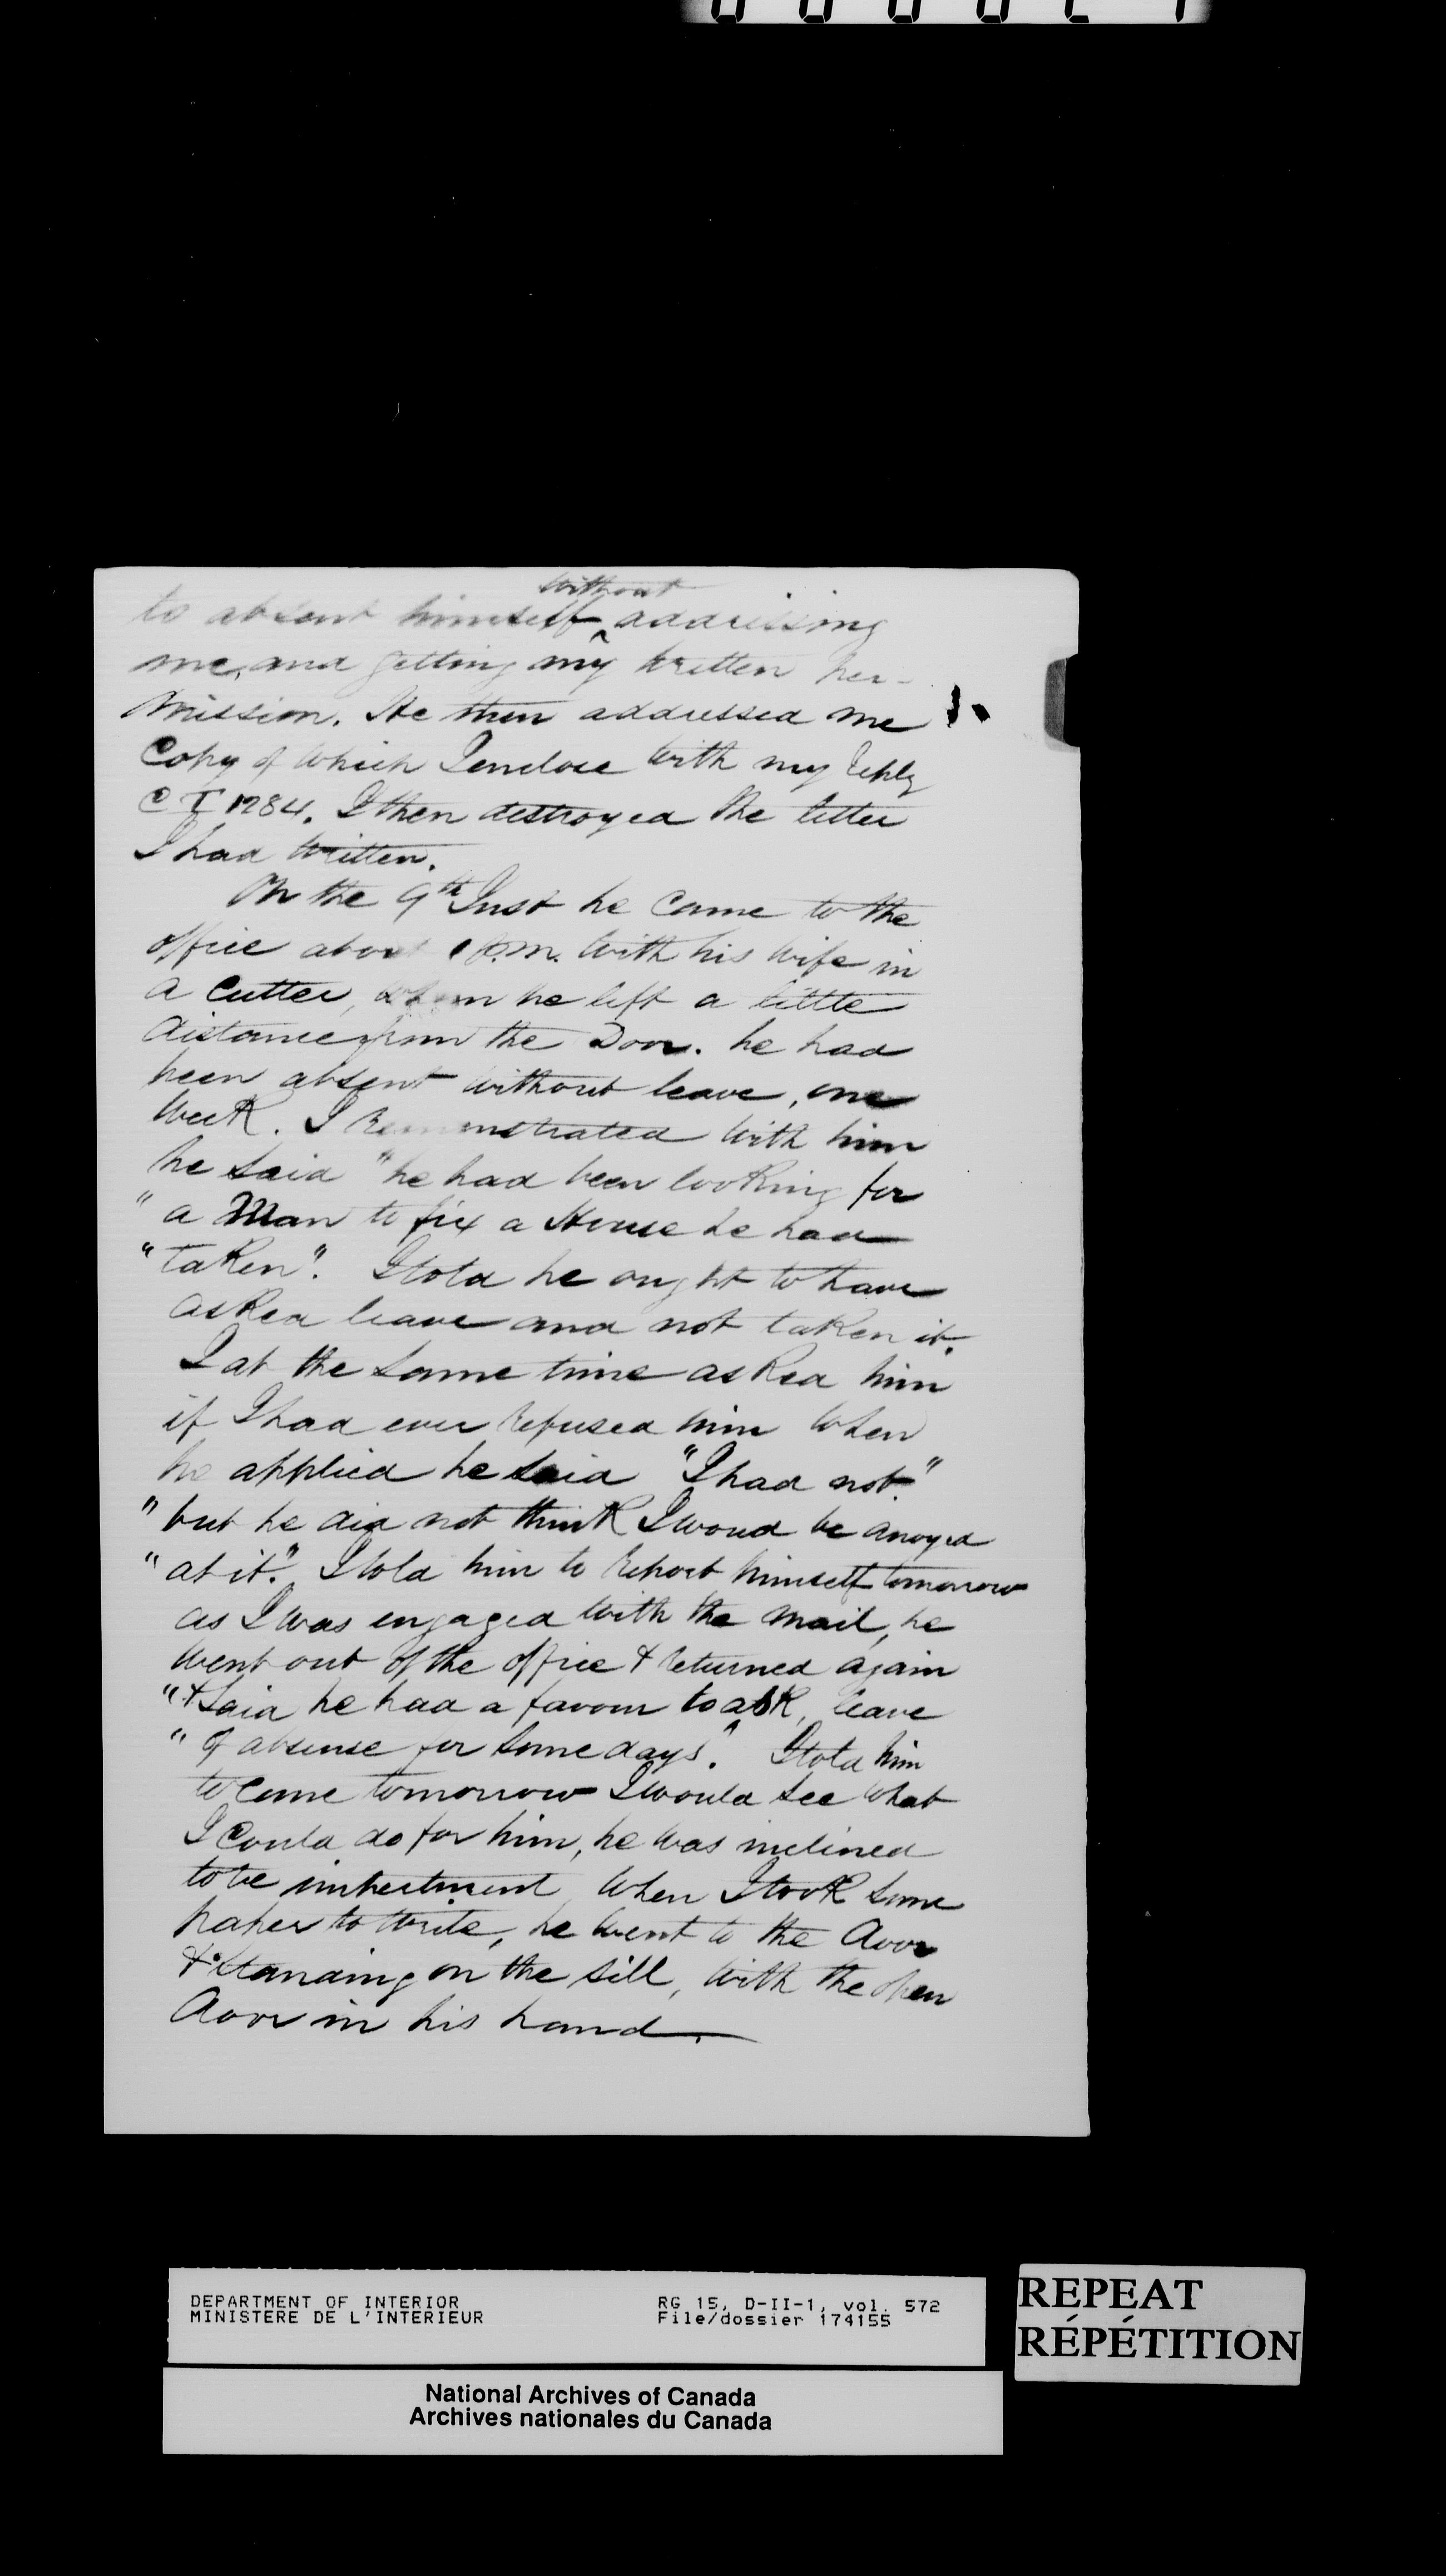 without
to absent himself ^ addressing
me, and getting my written per-
mission. He then addressed me
Copy of which I enclose with my reply
C T 1284. I then destroyed the letter
I had written.
On the 9th Inst he came to the
office about 1 P.m. with his wife in
a Cutter, whom he left a little
distance from the Door. he had
been absent without leave, one
week. I remonstrated with him
he said "he had been looking for
"a Man to fix a House he had
"taken". I told he ought to have
asked leave and not taken it.
I at the same time asked him
if I had ever refused him when
he applied he said "I had not."
"but he did not think I woud be anoyed
"at it." I told him to report himself tomorrow
as I was engaged with the mail, he
went out of the office & returned again
"& said he had a favour to ask, leave
"of absense for some days". I told him
to come tomorrow I would see what
I could do for him, he was inclined
to be impertinent when I took some
paper to write, he went to the door
& standing on the sill, with the open
door in his hand.
DEPARTMENT OF INTERIOR
MINISTERE DE L'INTERIEUR
RG 15, D-II-1, vol. 572
File/dossier 174155
REPEAT
RÉPÉTITION
National Archives of Canada
Archives nationales du Canada